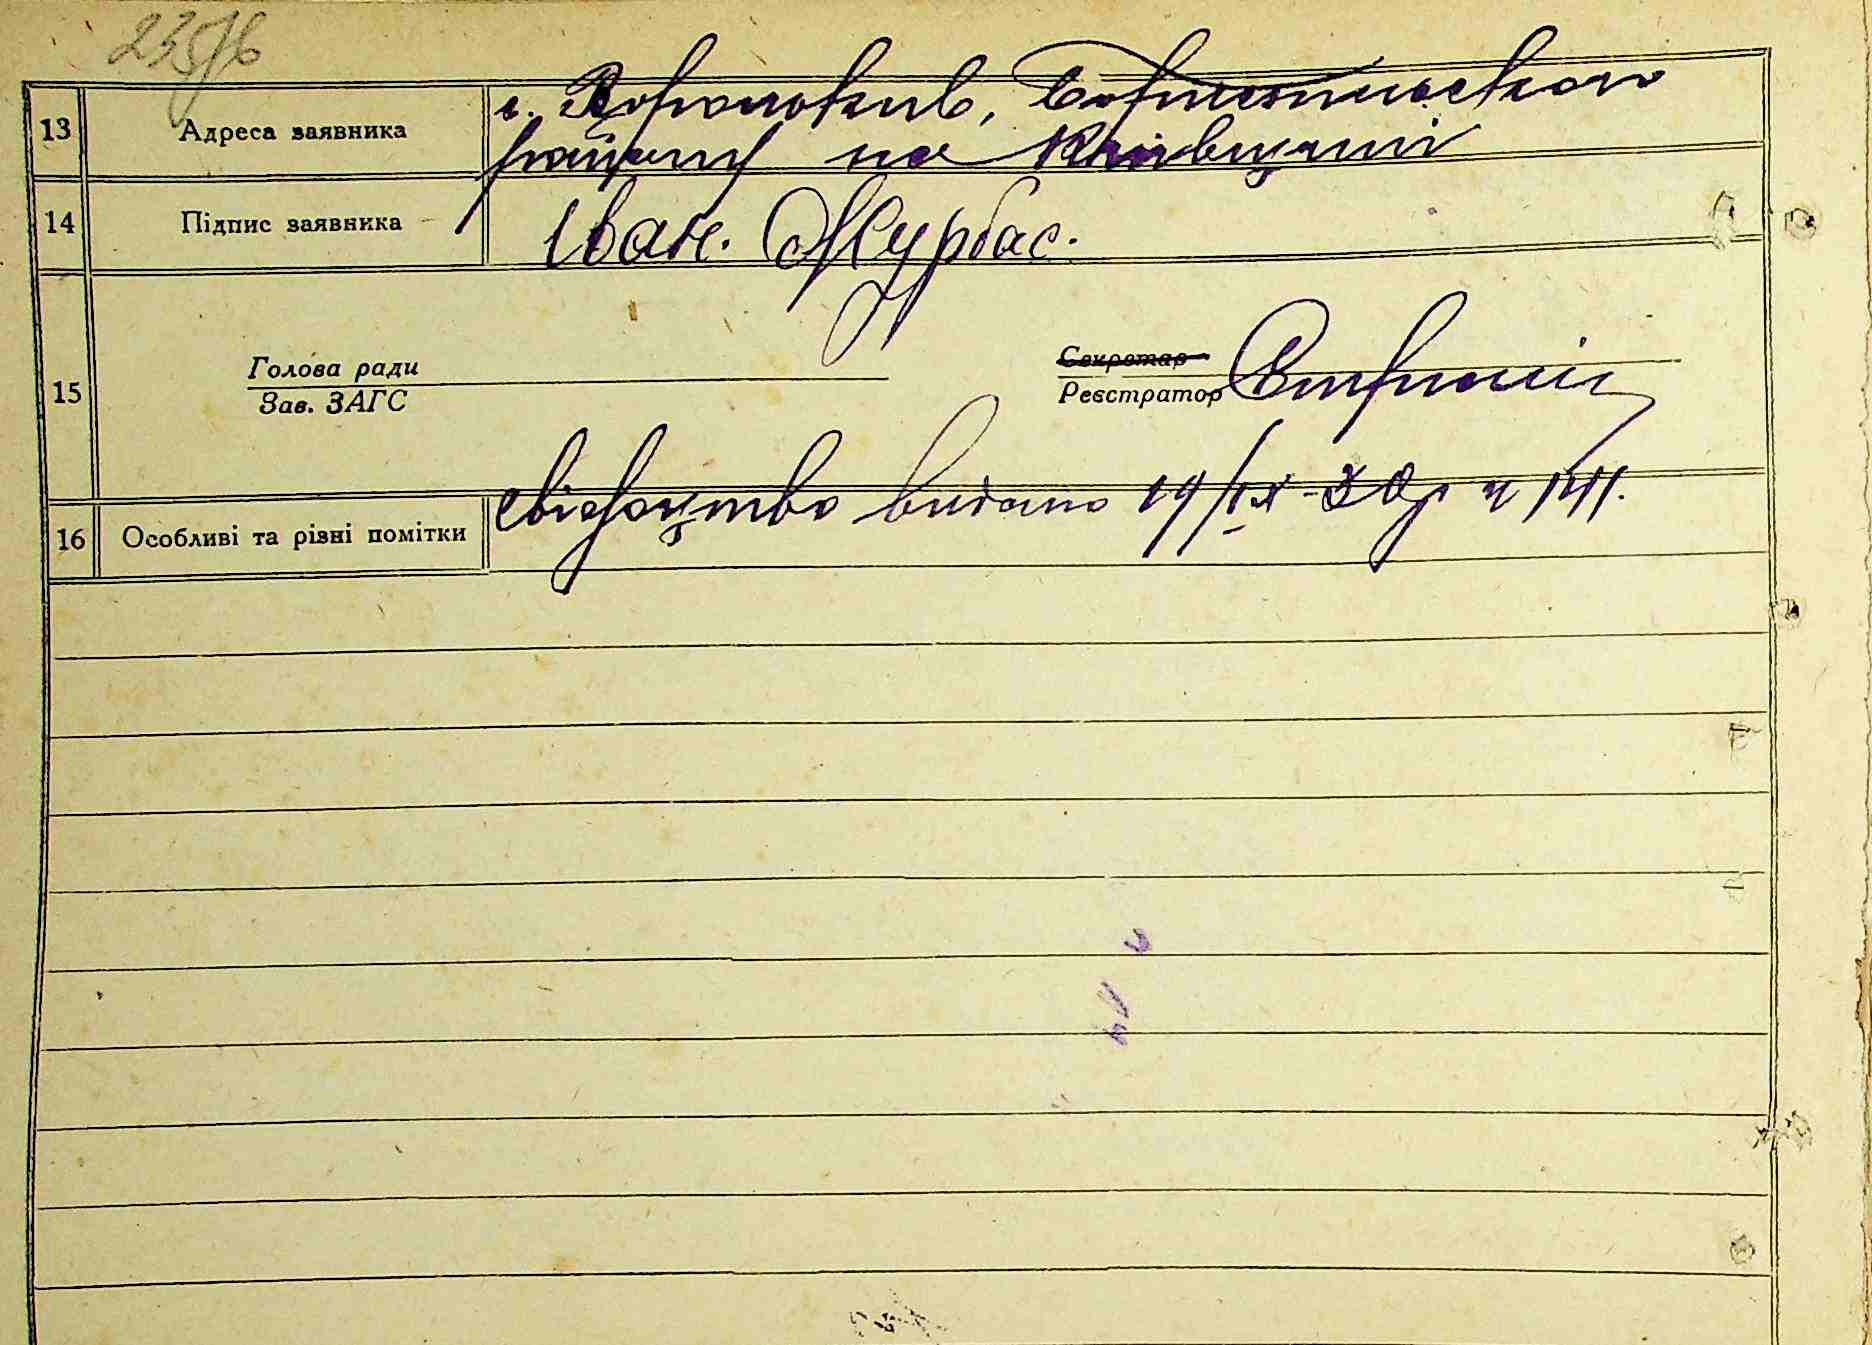 13 Адреса заявника с. Вороньків, Бориспольского
району на Київщині
14 Підпис заявника Іван. Журбас.
15 Голова ради Секретар
Зав. ЗАГС Реєстратор
16 Особливі та різні помітки свідоцтво видано 19/ІХ-30р ч 1411.